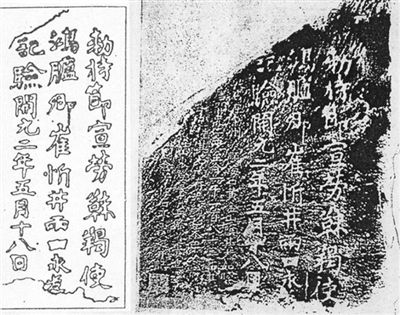 勅持節宣勞靺羯使
鴻臚卿崔忻井兩口永為
記驗開元二年五月十八日
勅持節宣勞靺羯使
鴻臚卿崔忻井兩口永為
記驗開元二年五月十八日